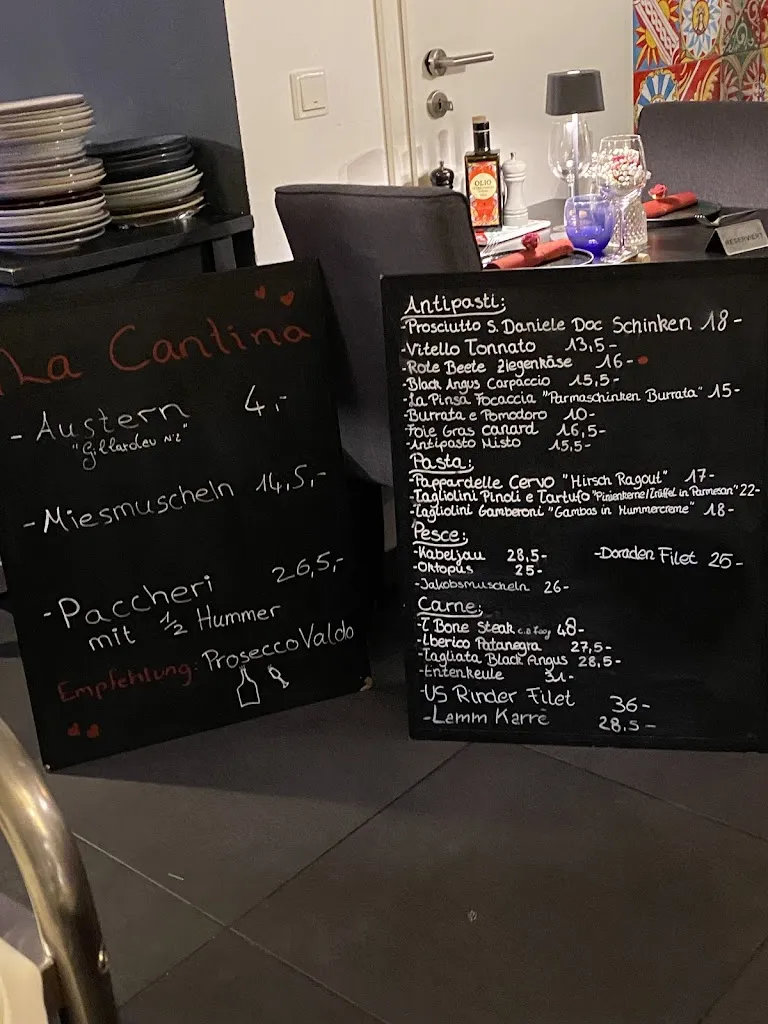 La Cantina
- Austern 4,-
"Gillardeu N°2"
- Miesmuscheln 14,5,-
- Paccheri 26,5,-
mit 1/2 Hummer
Empfehlung: Prosecco Valdo
Antipasti:
-Prosciutto S. Daniele Doc Schinken 18-
-Vitello Tonnato 13,5-
-Rote Beete Ziegenkäse 16-
-Black Angus Carpaccio 15,5-
-La Pinsa Focaccia "Parmaschinken Burrata" 15-
-Burrata e Pomodoro 10-
-Foie Gras canard 16,5-
-Antipasto Misto 15,5-
Pasta:
-Pappardelle Cervo "Hirsch Ragout" 17-
-Tagliolini Pinoli e Tartufo "Pinienkerne/Trüffel in Parmesan" 22-
-Tagliolini Gamberoni "Gambas in Hummercreme" 18-
Pesce:
-Kabeljau 28,5- -Doraden Filet 25-
-Oktopus 25-
-Jakobsmuscheln 26-
Carne:
-T Bone Steak 48-
-Iberico Patanegra 27,5-
-Tagliata Black Angus 28,5-
-Entenkeule 31-
-US Rinder Filet 36-
-Lamm Karre 28,5-
OLIO
RESERVIERT